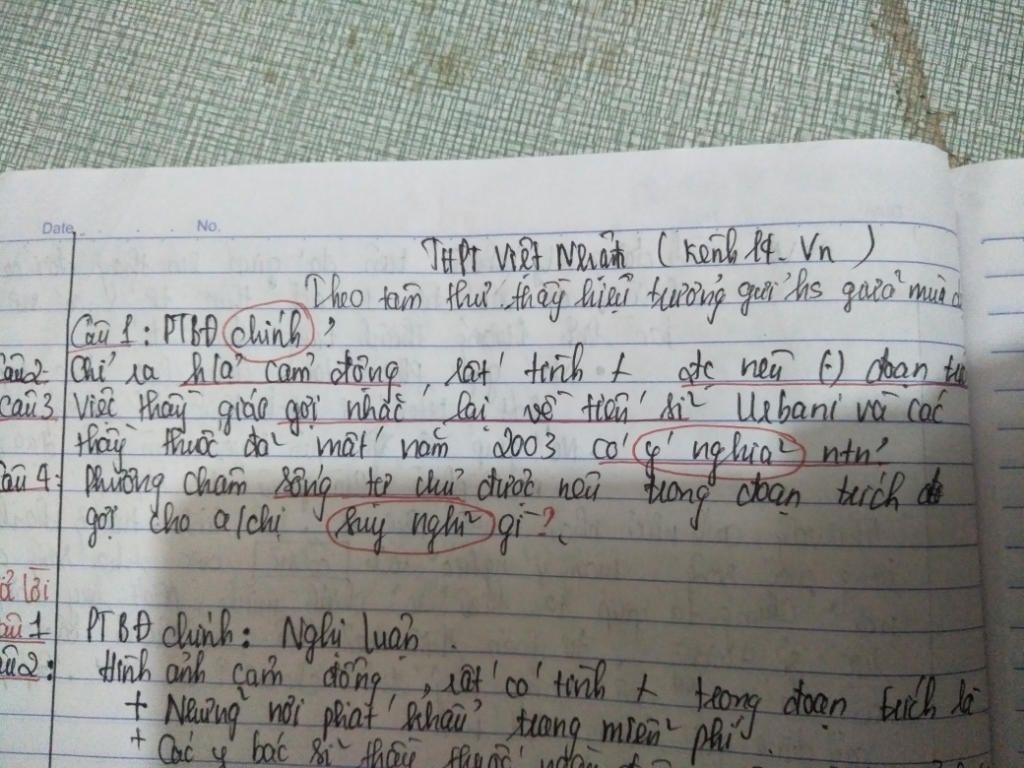 Date No.
THPT Việt Nhân (Kênh 14. Vn)
Theo tâm thư thầy hiệu trưởng gửi hs giữa mùa d
Câu 1: PTBĐ chính?
Câu 2: Chỉ ra h/ả cảm động, rất tình + đc nêu (-) đoạn tr
Câu 3 Việc thầy giáo gợi nhắc lại về tiến sĩ Urbani và các
thầy thuốc đã mất năm 2003 có ý nghĩa ntn?
Câu 4: Phương châm sống tử chủ được nêu trong đoạn trích
gợi cho a/chị suy nghĩ gì?
ả lời
âu 1 PTBĐ chính: Nghị luận.
âu 2: Hình ảnh cảm động, rất có tình + trong đoạn trích là
+ Những nơi phát khẩu trang miễn phí.
+ Các y bác sĩ thầy thuốc